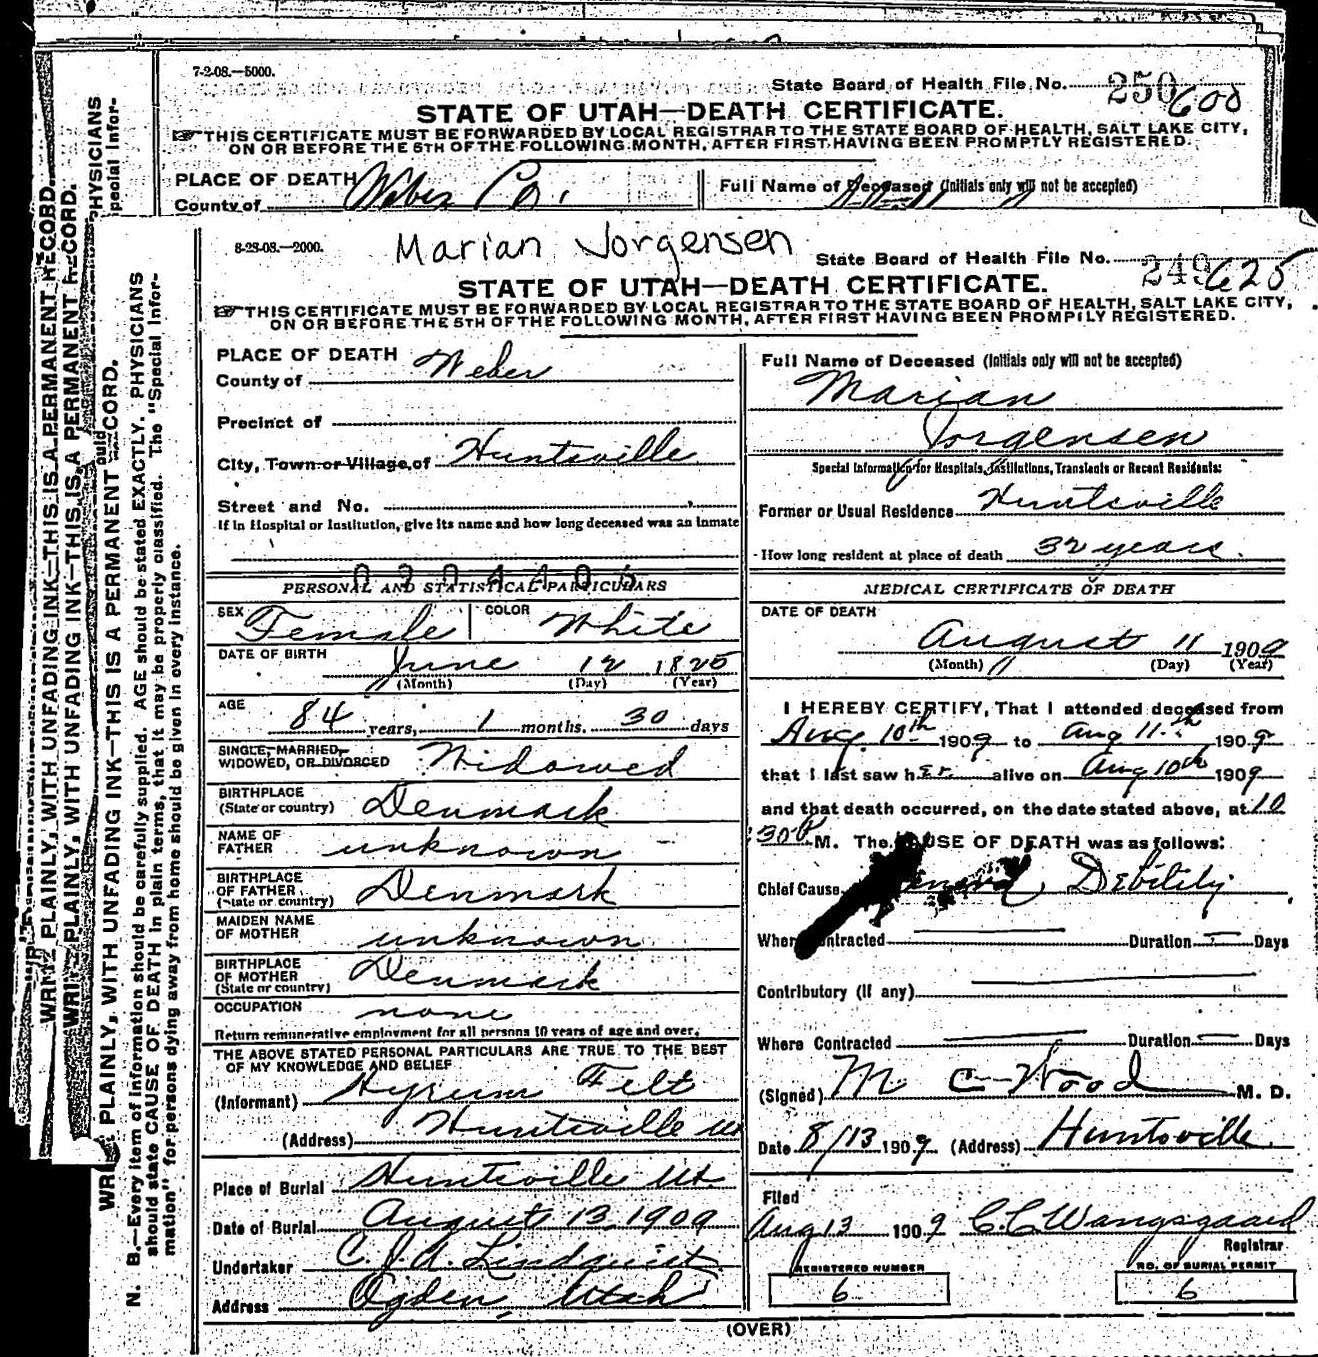 7-2-08.—5000.
State Board of Health File No. 250 600
STATE OF UTAH—DEATH CERTIFICATE.
THIS CERTIFICATE MUST BE FORWARDED BY LOCAL REGISTRAR TO THE STATE BOARD OF HEALTH, SALT LAKE CITY,
ON OR BEFORE THE 5TH OF THE FOLLOWING MONTH, AFTER FIRST HAVING BEEN PROMPTLY REGISTERED.
PLACE OF DEATH
County of Weber Co.
Full Name of Deceased (Initials only will not be accepted)
PHYSICIANS
pecial Infor-
WRITE PLAINLY, WITH UNFADING INK—THIS IS A PERMANENT RECORD.
PLAINLY, WITH UNFADING INK—THIS IS A PERMANENT RECORD.
PLAINLY, WITH UNFADING INK—THIS IS A PERMANENT RECORD.
N. B.—Every item of information should be carefully supplied. AGE should be stated EXACTLY. PHYSICIANS
should state CAUSE OF DEATH in plain terms, that it may be properly classified. The "Special Infor-
mation" for persons dying away from home should be given in every instance.
8-28-08.—2000.
Marian Jorgensen
State Board of Health File No. 249 625
STATE OF UTAH—DEATH CERTIFICATE.
THIS CERTIFICATE MUST BE FORWARDED BY LOCAL REGISTRAR TO THE STATE BOARD OF HEALTH, SALT LAKE CITY,
ON OR BEFORE THE 5TH OF THE FOLLOWING MONTH, AFTER FIRST HAVING BEEN PROMPTLY REGISTERED.
PLACE OF DEATH
County of Weber
Precinct of
City, Town or Village, of Huntsville
Street and No.
If in Hospital or Institution, give its name and how long deceased was an inmate
PERSONAL AND STATISTICAL PARTICULARS
SEX Female COLOR White
DATE OF BIRTH June 12 1825
(Month) (Day) (Year)
AGE 84 years, 1 months, 30 days
SINGLE, MARRIED,
WIDOWED, OR DIVORCED Widowed
BIRTHPLACE
(State or country) Denmark
NAME OF
FATHER unknown
BIRTHPLACE
OF FATHER
(State or country) Denmark
MAIDEN NAME
OF MOTHER unknown
BIRTHPLACE
OF MOTHER
(State or country) Denmark
OCCUPATION none
Return remunerative employment for all persons 10 years of age and over.
THE ABOVE STATED PERSONAL PARTICULARS ARE TRUE TO THE BEST
OF MY KNOWLEDGE AND BELIEF
(Informant) Hyrum Felt
(Address) Huntsville
Place of Burial Huntsville Ut
Date of Burial August 13, 1909
Undertaker C. J. A. Lindquist
Address Ogden, Utah
Full Name of Deceased (Initials only will not be accepted)
Marian
Jorgensen
Special Information for Hospitals, Institutions, Transients or Recent Residents:
Former or Usual Residence Huntsville
How long resident at place of death 32 years
MEDICAL CERTIFICATE OF DEATH
DATE OF DEATH
August 11 1909
(Month) (Day) (Year)
I HEREBY CERTIFY, That I attended deceased from
Aug. 10th 1909 to Aug 11th 1909
that I last saw her alive on Aug 10th 1909
and that death occurred, on the date stated above, at 10
:30 P. M. The CAUSE OF DEATH was as follows:
Chief Cause Debility
Where Contracted Duration Days
Contributory (if any)
Where Contracted Duration Days
(Signed) M C Wood M. D.
Date 8/13 1909 (Address) Huntsville
Filed
Aug 13 1909 C. C. Wangsgaard
Registrar
REGISTERED NUMBER NO. OF BURIAL PERMIT
6 6
(OVER)